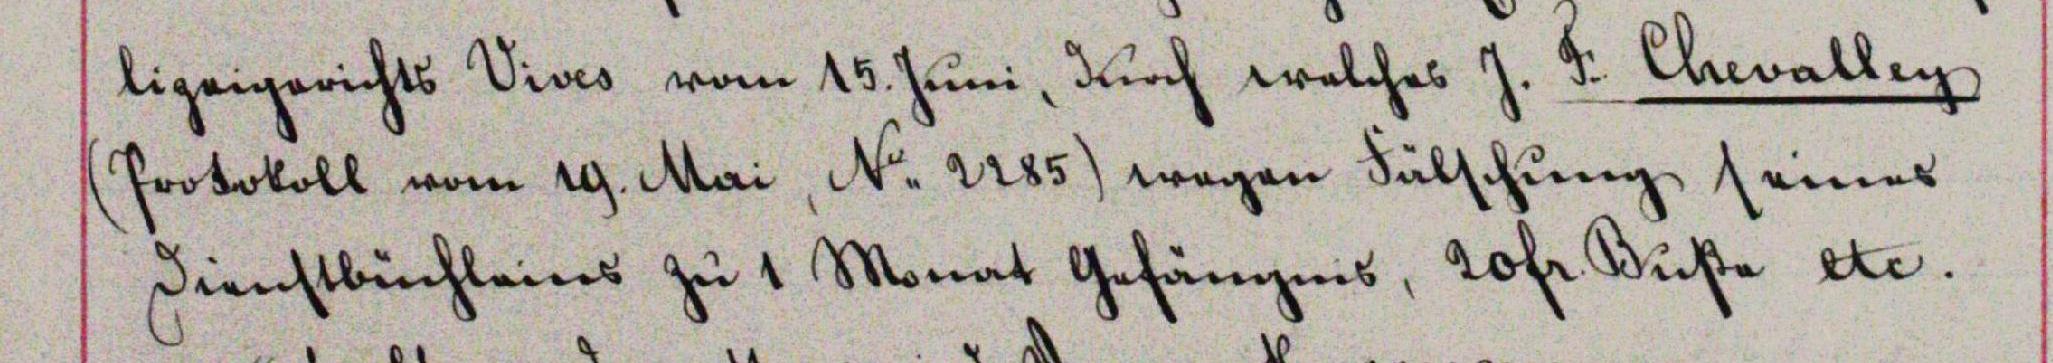 lizeigerichts Vives vom 15. Juni, durch welches J. F. Chevalley
(Protokoll vom 19. Mai, No. 2285) wegen Fälschung seines
Dienstbüchleins zu 1 Monat Gefängnis, 20 fr. Buße etc.